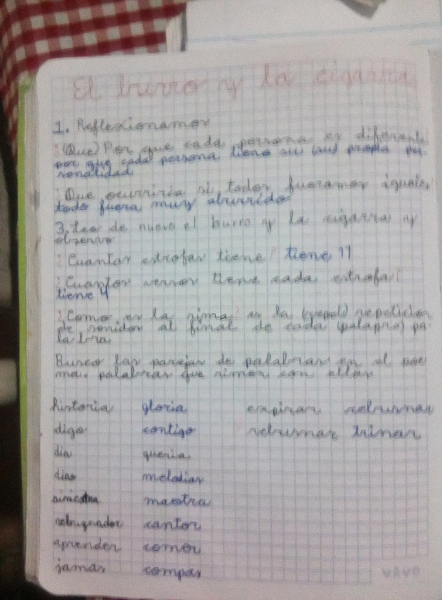 El burro y la cigarra
1. Reflexionamos
¿Que) Por que cada persona es diferente
por que cada persona tiene su (su) propia per
sonalidad
¿Que ocurriria si todos fueramos iguales
todo fuera muy aburrido
3. leo de nuevo el burro y la cigarra y
observo
¿Cuantas estrofas tiene? tiene 11
¿Cuantos versos tiene cada estrofa?
tiene 4
¿Como es la rima? es la repeticion
de sonidos al final de cada (palapra) pa
labra
Busco las parejas de palabras en el poe
ma. palabras que rimos con ellas
historia gloria expirar rebusnar
digo contigo rebusnar trinar
dia queria
dias melodias
siniestra maestra
rebuznador cantor
aprender comer
jamas compas